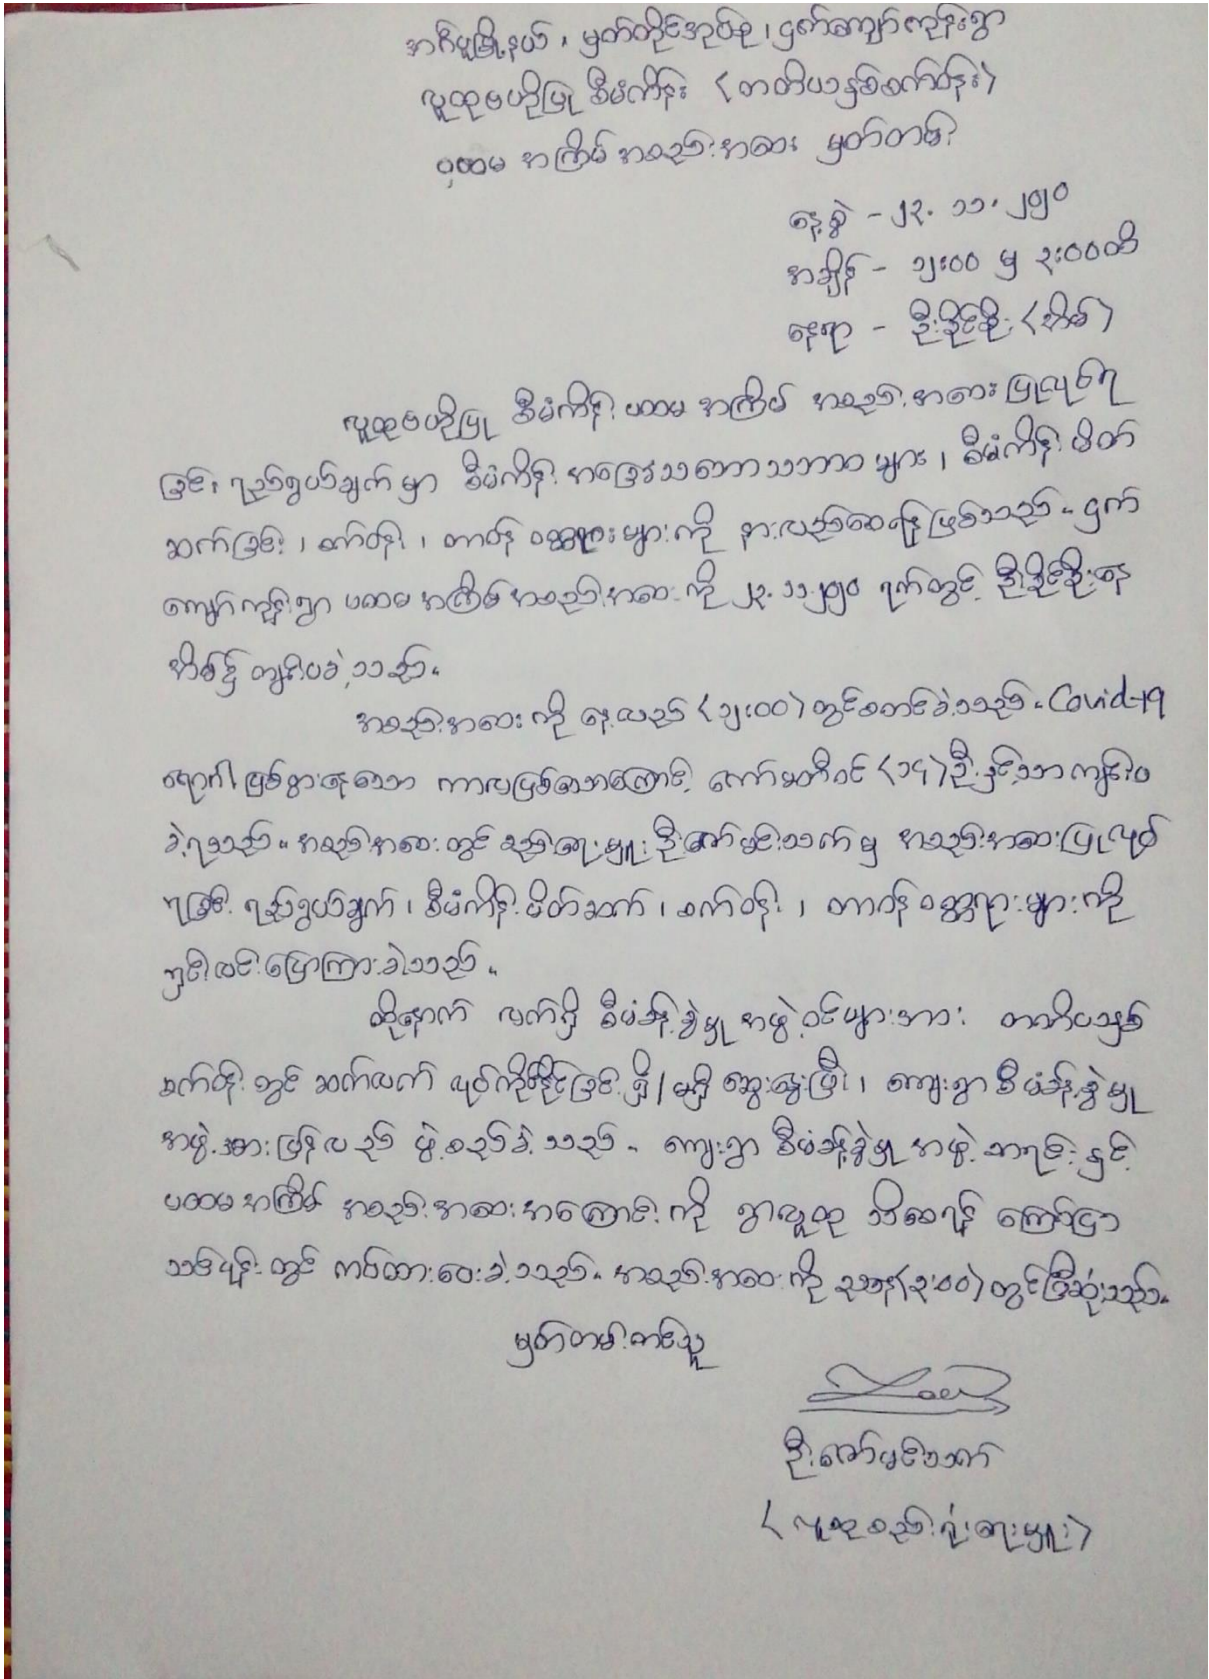 အင်္ဂပူမြို့နယ်၊ မှတ်တိုင်အုပ်စု၊ ငှက်ကျော်ကုန်းရွာ
လူထုဗဟိုပြု စီမံကိန်း (တတိယနှစ်စက်ဝန်း)
ပထမ အကြိမ် အစည်းအဝေး မှတ်တမ်း
နေ့စွဲ - ၂၃. ၁၁. ၂၀၂၀
အချိန် - ၁၂:၀၀ မှ ၃:၀၀ထိ
နေရာ - ဦးခိုင်စိုး (အိမ်)
လူထုဗဟိုပြု စီမံကိန်း ပထမ အကြိမ် အစည်းအဝေး ပြုလုပ်ရ
ခြင်း ရည်ရွယ်ချက် မှာ စီမံကိန်း အခြေခံသဘောသဘာဝ များ၊ စီမံကိန်း မိတ်
ဆက်ခြင်း၊ စက်ဝန်း၊ တာဝန် ဝတ္တရားများကို နားလည်စေရန် ဖြစ်သည်။ ငှက်
ကျော်ကုန်းရွာ ပထမ အကြိမ် အစည်းအဝေးကို ၂၃.၁၁.၂၀၂၀ ရက်တွင် ဦးခိုင်စိုးနေ
အိမ်၌ ကျင်းပခဲ့သည်။
အစည်းအဝေးကို နေ့လည် (၁၂:၀၀) တွင်စတင်ခဲ့သည်။ Covid-19
ရောဂါ ဖြစ်ပွားနေသော ကာလဖြစ်သောကြောင့် ကော်မတီဝင် (၁၄) ဦးနှင့်သာ ကျင်းပ
ခဲ့ရသည်။ အစည်းအဝေးတွင် စည်းရုံးရေးမှူး ဦးဇော်မင်းသက် မှ အစည်းအဝေးပြုလုပ်
ရခြင်း ရည်ရွယ်ချက်၊ စီမံကိန်း မိတ်ဆက်၊ စက်ဝန်း၊ တာဝန် ဝတ္တရားများကို
ရှင်းလင်းပြောကြားခဲ့သည်။
ထို့နောက် လက်ရှိ စီမံခန့်ခွဲမှု အဖွဲ့ဝင်များအား တတိယနှစ်
စက်ဝန်းတွင် ဆက်လက် လုပ်ကိုင်နိုင်ခြင်း ရှိ/မရှိ ဆွေးနွေးပြီး၊ ကျေးရွာ စီမံခန့်ခွဲမှု
အဖွဲ့အား ပြန်လည် ဖွဲ့စည်းခဲ့သည်။ ကျေးရွာ စီမံခန့်ခွဲမှု အဖွဲ့ စာရင်း နှင့်
ပထမ အကြိမ် အစည်းအဝေးအကြောင်းကို ရွာလူထု သိစေရန် ကြော်ငြာ
သင်ပုန်းတွင် ကပ်ထားပေးခဲ့သည်။ အစည်းအဝေးကို ညနေ(၃:၀၀) တွင်ပြီးဆုံးသည်။
မှတ်တမ်းတင်သူ
ဦးဇော်မင်းသက်
(လူထုစည်းရုံးရေးမှူး)